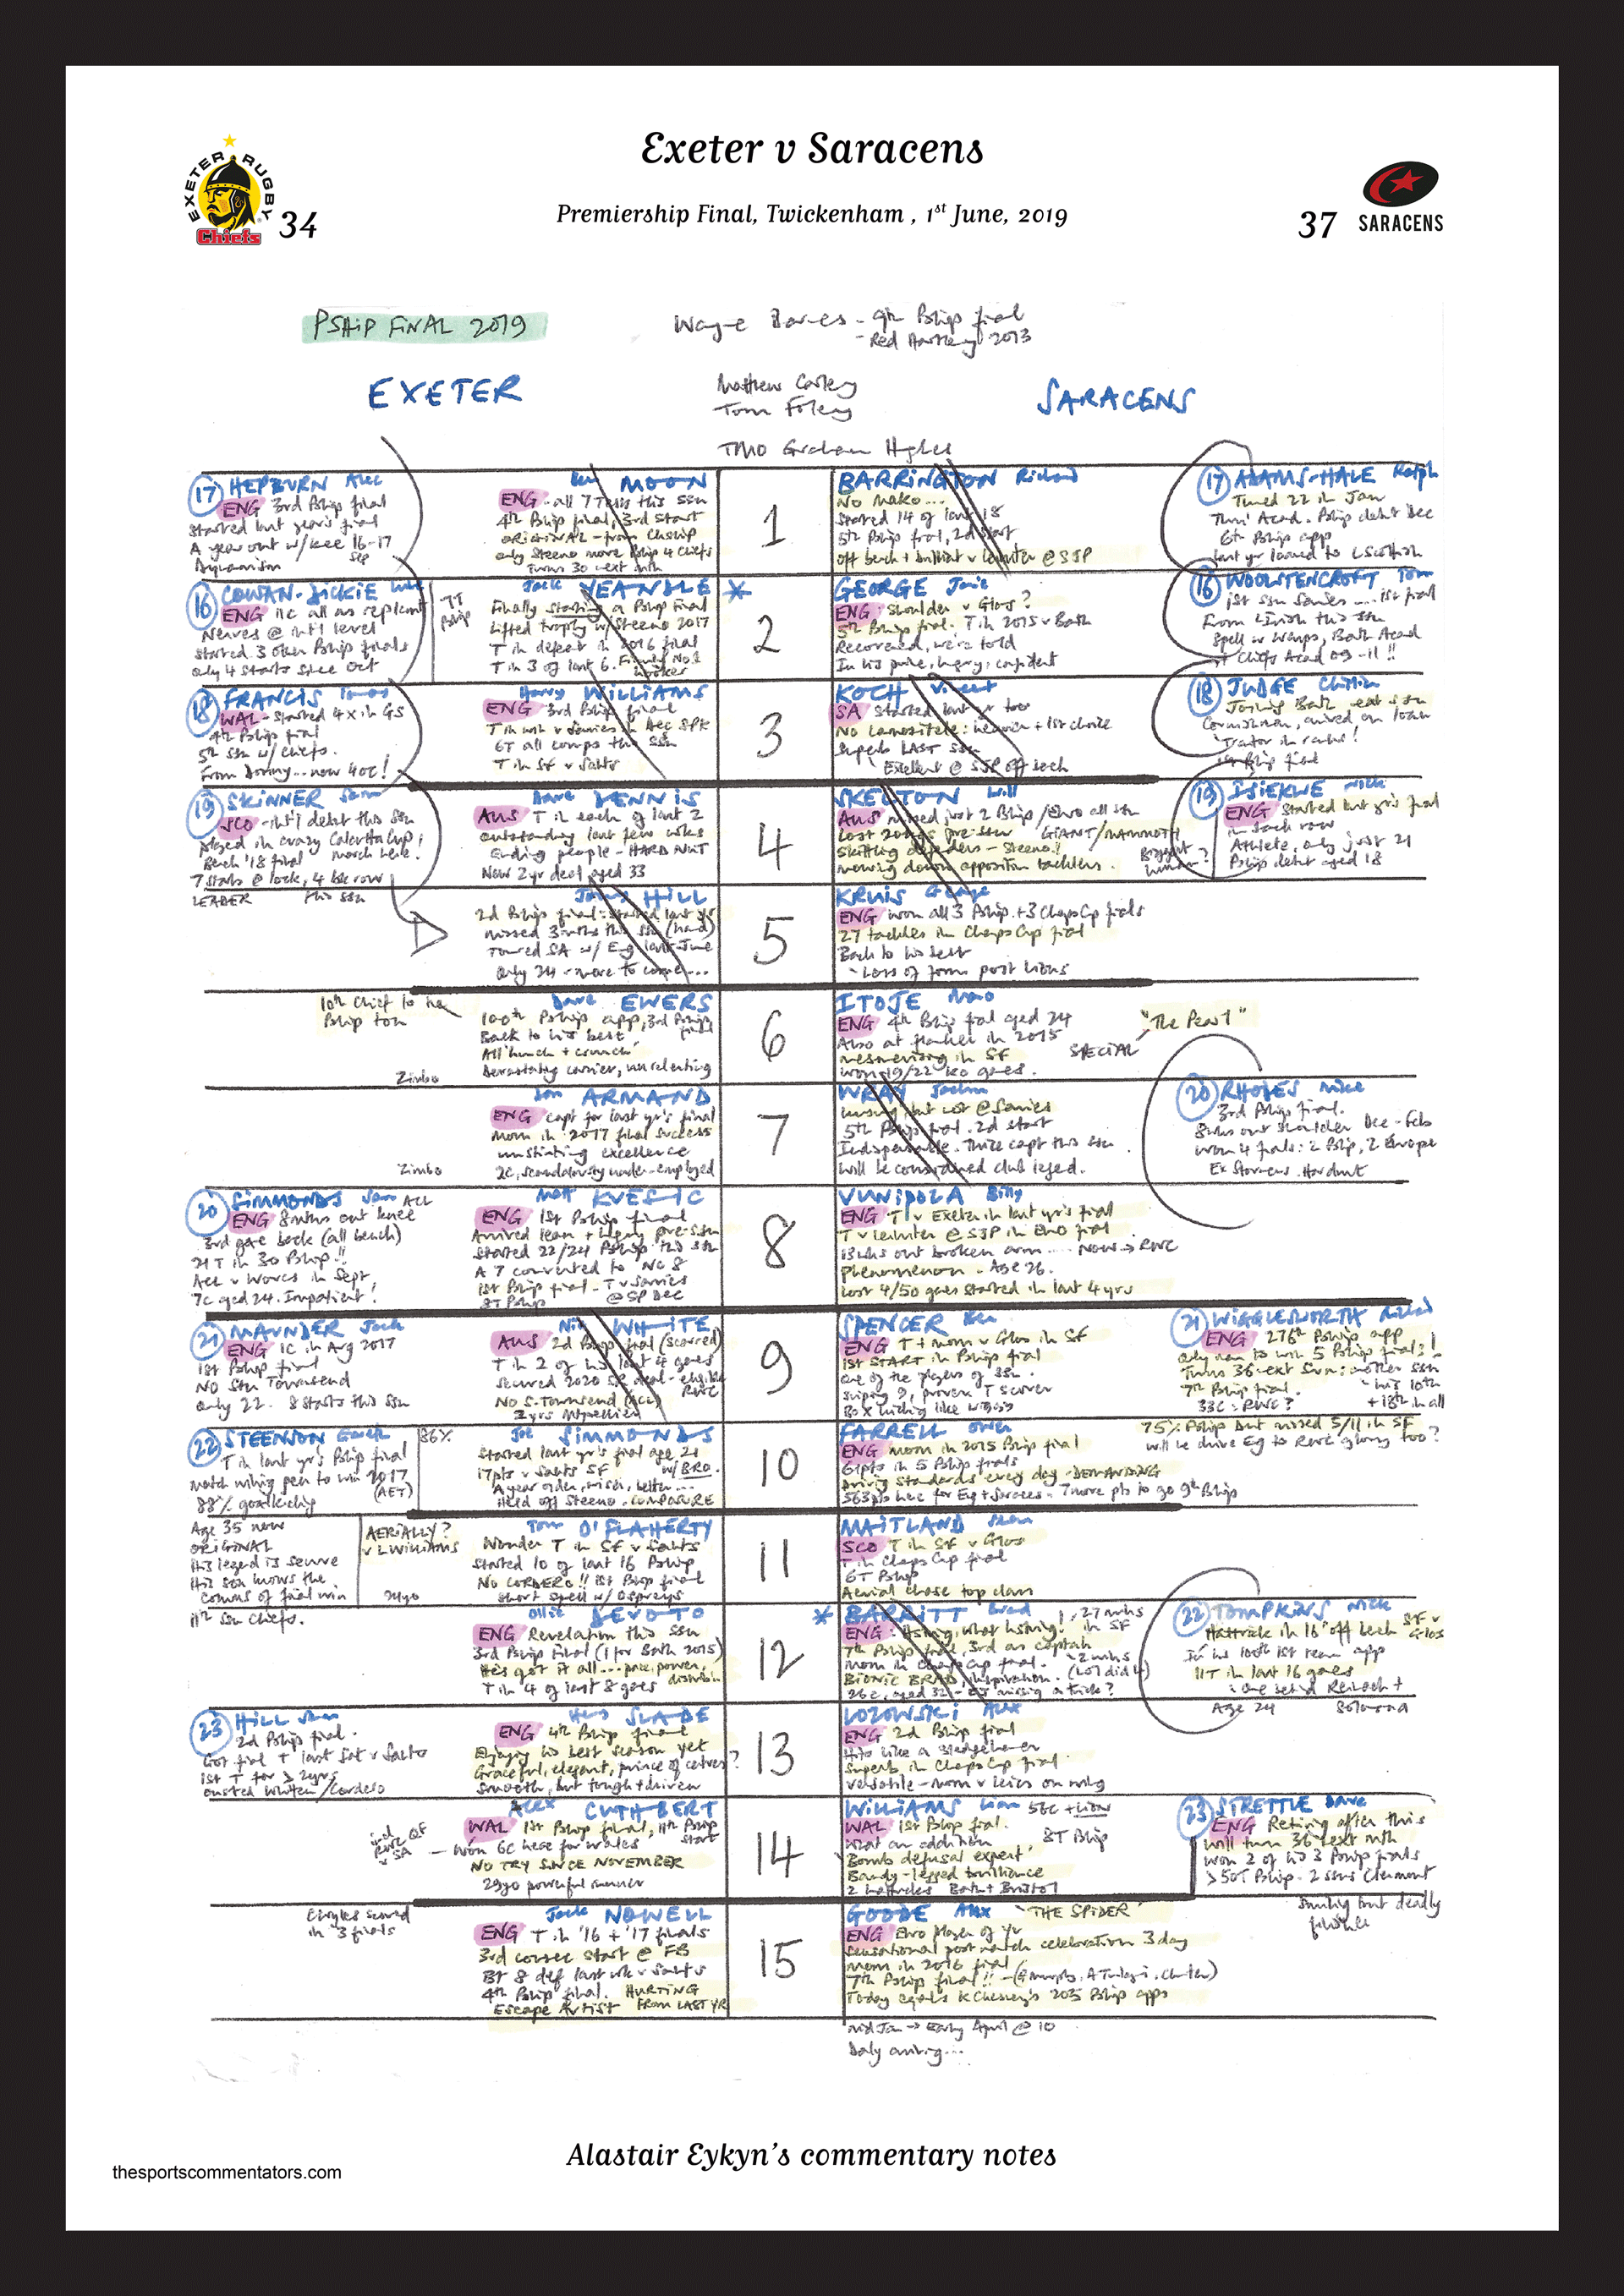 Exeter v Saracens
EXETER RUGBY
Chiefs
34
Premiership Final, Twickenham , 1st June, 2019
37
SARACENS
PSHIP FINAL 2019
Wayne Barnes - 9th Pship final
- Red Hartley 2013
EXETER
Mathew Carley
Tom Foley
SARACENS
TMO Graham Hughes
17 HEPBURN Alec
ENG 3rd Pship final
Started last year's final
A year out w/knee 16-17
Sep
Dynamism
Ben MOON
ENG - all 7 Tests this ssn
4th Pship final, 3rd start
ORIGINAL - from Cship
only Steeno more Pship 4 Chiefs
Turns 30 next mth
1
BARRINGTON Richard
No Mako...
Started 14 of last 18
5th Pship final, 2d start
off bench + brilliant v Leinster @ SJP
17 ADAMS-HALE Ralph
Turned 22 in Jan
Thru' Acad. Pship debut Dec
6th Pship app
last yr loaned to L Scottish
16 COWAN-DICKIE Luke
ENG 11c all as replcmt
Nerves @ int'l level
started 3 other Pship finals
only 4 starts since Oct
7T
Pship
Jack YEANDLE *
Finally starting a Pship final
Lifted trophy w/ Steeno 2017
T in defeat in 2016 final
T in 3 of last 6. Firmly No1
hooker
2
GEORGE Jamie
ENG shoulder v Glos?
5th Pship final. T in 2015 v Bath
Recovered, we're told
In his prime, hungry, confident
16 WOOLSTENCROFT Tom
1st ssn Sarries .... 1st final
From L Irish this ssn
Spell w Wasps, Bath Acad
+ Chiefs Acad 09-11 !!
18 FRANCIS Tomas
WAL - started 4x in GS
4th Pship final
5th ssn w/ Chiefs.
From Donny... now 40c!
Harry WILLIAMS
ENG 3rd Pship final
T in win v Sarries in Dec SPK
6T all comps this ssn
T in SF v Salts
3
KOCH Vincent
SA started last yr too
No Lamositele: heavier + 1st choice
Superb LAST ssn
Excellent @ SJP off bench
18 JUDGE Christian
Joining Bath next ssn
Cornishman, arrived on loan
'Traitor in ranks!
1st Pship final
19 SKINNER Sam
SCO - int'l debut this ssn
played in crazy Calcutta Cup,
Bench '18 final March here.
7 starts @ lock, 4 bk row
LEADER this ssn
Dave DENNIS
AUS T in each of last 2
outstanding last few wks
Ending people - HARD NUT
Now 2yr deal aged 33
4
SKELTON Will
AUS missed just 2 Pship/Euro all ssn
Lost 20kgs pre-ssn GIANT/MAMMOTH
skittling defenders - Steeno!
mowing down opposition tacklers.
Biggest
human?
19 ISIEKWE Nick
ENG Started last yr's final
in back row
Athlete, only just 21
Pship debut aged 18
Jonny HILL
2d Pship final: started last yr
missed 3 mths this ssn (hand)
Toured SA w/ Eng last June
Only 24 - more to come...
5
KRUIS George
ENG won all 3 Pship + 3 Champs Cp finals
27 tackles in Champs Cup final
Back to his best
- Loss of form post Lions
10th Chief to hv
Pship ton
Zimbo
Dave EWERS
100th Pship app, 3rd Pship
final
Back to his best,
All hunch + crunch,
Devastating carrier, unrelenting
6
ITOJE Maro
ENG 4th Pship final aged 24
Also at flanker in 2015
mesmerising in SF
won 19/22 KO games.
SPECIAL
"The Pearl"
Zimbo
Don ARMAND
ENG capt for last yr's final
Mom in 2017 final success
unstinting excellence
2c, scandalously under-employed
7
WRAY Jackson
unsung, but not @ Sarries
5th Pship final. 2d start
Indispensable. Thrice capt this ssn
will be considered club legend.
20 RHODES Mike
3rd Pship final.
8wks out shoulder Dec - Feb
won 4 finals: 2 Pship, 2 Europe
Ex Stormers. Hardnut
20 SIMMONDS Sam ACL
ENG 8mths out knee
3rd game back (all bench)
21T in 30 Pship !!
ACL v Worcs in Sept,
7c aged 24. Impatient!
Matt KVESIC
ENG 1st Pship final
Arrived lean + hungry pre-ssn
Started 22/24 Pship this ssn
A 7 converted to No 8
1st Pship final - T v Sarries
8T Pship @ SP Dec
8
VUNIPOLA Billy
ENG T v Exeter in last yr's final
T v Leinster @ SJP in Euro final
13wks out broken arm .... Now → RWC
Phenomenon - Age 26.
Lost 4/50 games started in last 4 yrs
21 MAUNDER Jack
ENG 1c in Arg 2017
1st Pship final
No Stu Townsend
Only 22. 8 starts this ssn
Nic WHITE
AUS 2d Pship final (scored)
T in 2 of his last 4 games
Secured 2020 SR deal - eligible
RWC
No S. Townsend (ACL)
3yrs Montpellier
9
SPENCER Ben
ENG T + mom v Glos in SF
1st START in Pship final
One of the players of ssn.
Sniping 9, proven T scorer
Box kicking like Wiggy
21 WIGGLESWORTH Richard
ENG 276th Pship app
only man to win 5 Pship finals!
Turns 36 next Sun: another ssn
7th Pship final. - his 10th
33c: RWC? + 18th in all
22 STEENSON Gareth
T in last yr's Pship final
match wining pen to win 2017
(AET)
88% goalkicking
86%
Joe SIMMONDS
Started last yr's final age 21
17pts v Salts SF w/BRO.
A year older, wiser, better...
Held off Steeno. COMPOSURE
10
FARRELL Owen
ENG mom in 2015 Pship final
61pts in 5 Pship finals
Driving standards every day - DEMANDING
563pts here for Eng + Sarries - 7 more pts to go 9th Pship
75% Pship but missed 5/11 in SF
will he drive Eng to RWC glory too?
Age 35 now
ORIGINAL
His legend is secure
His son knows the
comms of final win
11th ssn Chiefs.
AERIALLY?
v L WILLIAMS
24yo
Tom O'FLAHERTY
Wonder T in SF v Salts
Started 10 of last 16 Pship
NO CORDERO!! 1st Pship final
Short spell w/ Ospreys
11
MAITLAND Sean
SCO T in SF v Glos
T in Champs Cup final
6T Pship
Aerial chase top class
Ollie DEVOTO
ENG Revelation this ssn
3rd Pship Final (1 for Bath 2015)
He's got it all... pace, power,
distribn.
T in 4 of last 8 games
12
* BARRITT Brad
ENG: Hstring, what hstring! 27 mins
in SF
7th Pship final, 3rd as captain
Mom in Champs Cup final.
BIONIC BRAD, inspiration.
26c, aged 32 - EJ missing a trick?
22 TOMPKINS Nick
Hattrick in 16' off bench SF v
Glos
In his 100th 1st team app
11T in last 16 games
Age 24
23 HILL Sam
2d Pship final.
Got final T last Sat v Salts
1st T for > 2yrs
ousted Whitten/Cordero
Henry SLADE
ENG 4th Pship final
Enjoying his best season yet
Graceful, elegant, prince of centres?
Smooth, but tough + driven
13
LOZOWSKI Alex
ENG 2d Pship final
Hits like a sledgehammer
Superb in Champs Cup final.
Versatile - mom v Leics on wing
Alex CUTHBERT
WAL 1st Pship final, 11th Pship
start
- Won 6c here for Wales
NO TRY SINCE NOVEMBER
29yo powerful runner
14
WILLIAMS Liam 56c + Lion
WAL 1st Pship final.
What an addition 8T Pship
'Bomb defusal expert'
Bandy-legged brilliance
2 hattricks Bath + Bristol
23 STRETTLE Dave
ENG Retiring after this
will turn 36 next mth
Won 2 of his 3 Pship finals
> 50T Pship - 2 ssns Clermont
Smiling but deadly
finisher
in 3 finals
Jack NOWELL
ENG T in '16 + '17 finals
3rd consec start @ FB
Bt 8 def last wk v Salts
4th Pship final. HURTING
Escape Artist FROM LAST YR
15
GOODE Alex "THE SPIDER"
ENG Euro player of Yr
Sensational post match celebration 3 day
Mom in 2016 final
7th Pship final!!
Today equals K Chesney's 203 Pship apps
mid Jan → Early April @ 10
Daly arriving...
Alastair Eykyn's commentary notes
thesportscommentators.com